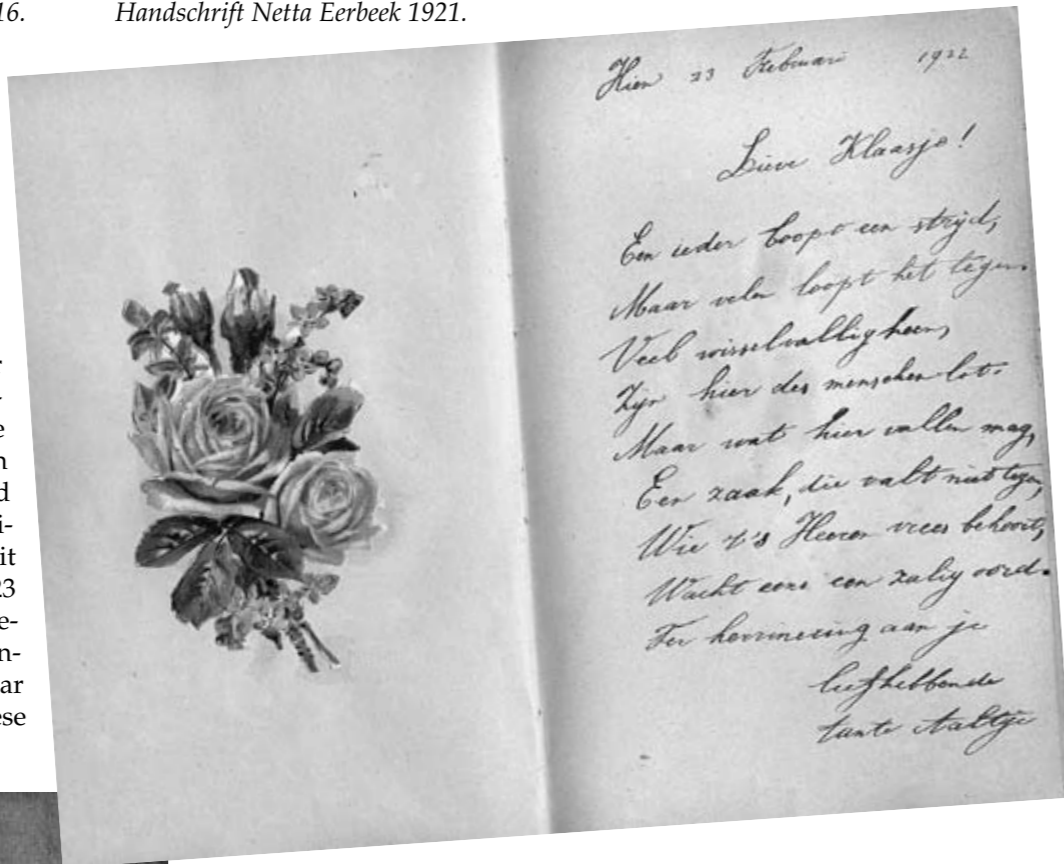 16.
Handschrift Netta Eerbeek 1921.
e
n
d
i-
it
23
e-
n-
ar
ese
Hien 23 Februari 1922
Lieve Klaasje!
Een ieder loopt een strijd,
Maar velen loopt het tegen.
Veel wisselvalligheen,
Zijn hier des menschen lot.
Maar wat hier vallen mag,
Een zaak, die valt niet tegen,
Wie 's Heeren vrees behoort,
Wacht eens een zalig oord.
Ter herrinering aan je
liefhebbende
tante Aaltje